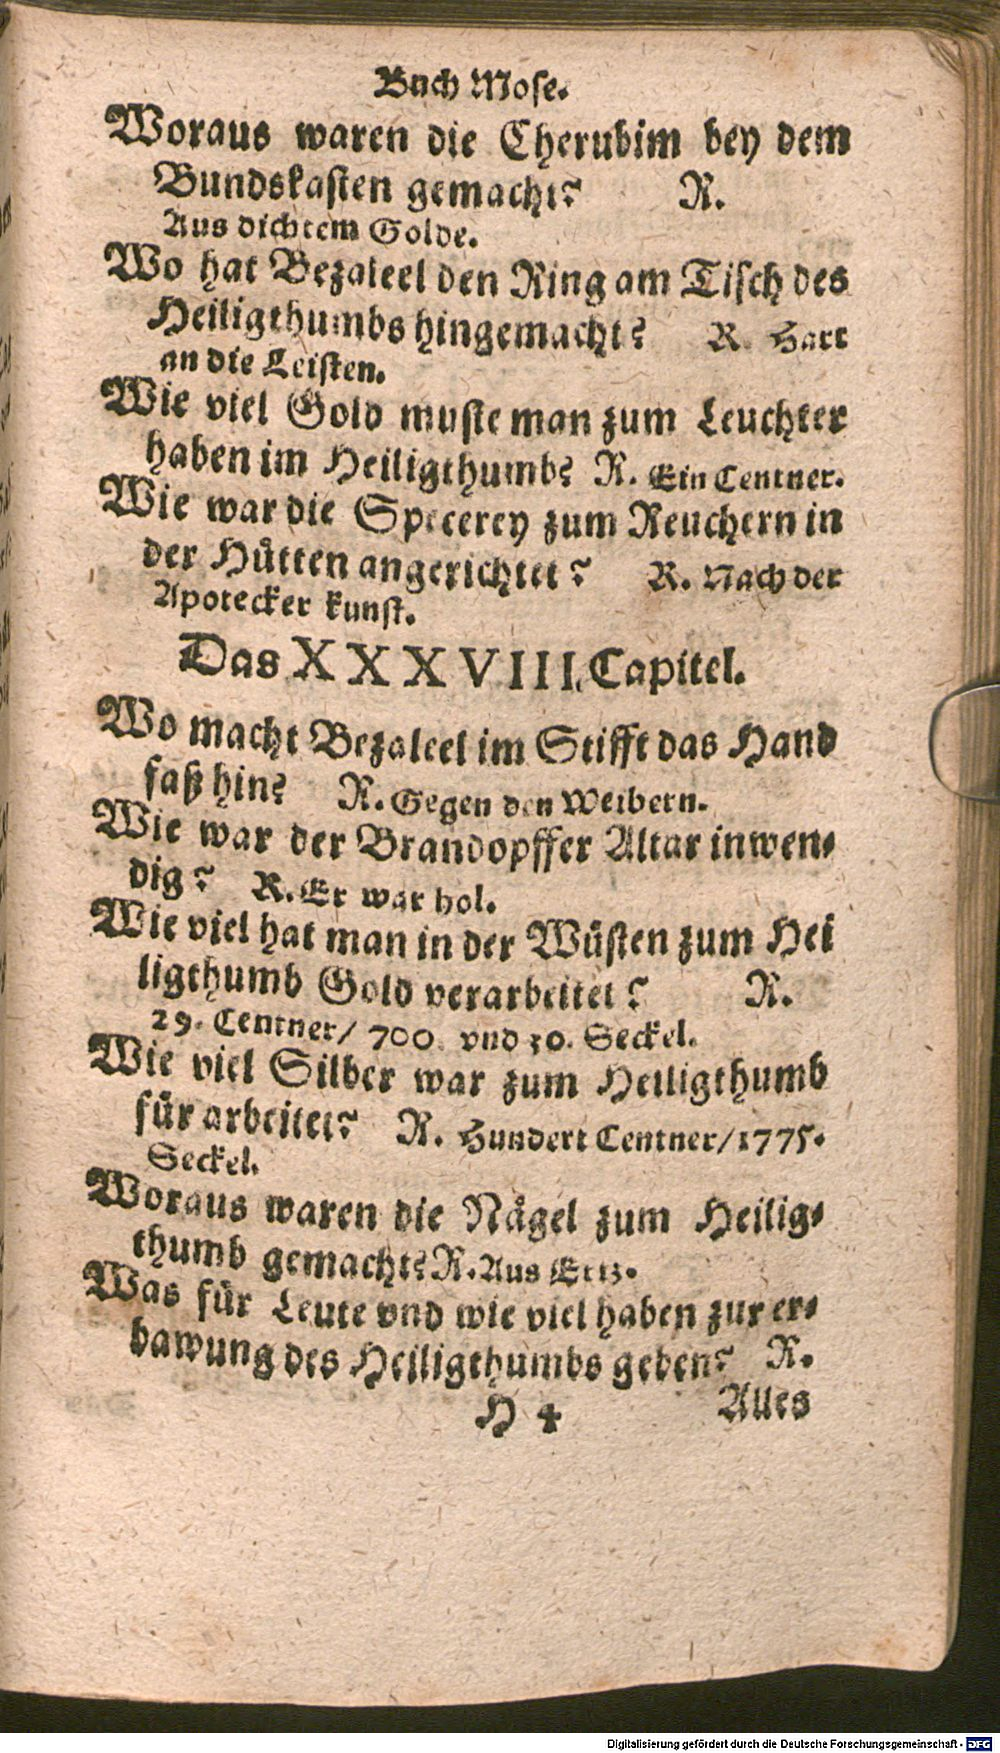 Buch Mose.
Woraus waren die Cherubim bey dem
Bundskasten gemacht? R.
Aus dichtem Golde.
Wo hat Bezaleel den Ring am Tisch des
Heiligthumbs hingemacht? R. Hart
an die Leisten.
Wie viel Gold muste man zum Leuchter
haben im Heiligthumb? R. Ein Centner.
Wie war die Specerey zum Reuchern in
der Hütten angerichtet? R. Nach der
Apotecker kunst.
Das XXXVIII. Capitel.
Wo macht Bezaleel im Stifft das Hand
faß hin? R. Gegen den Weibern.
Wie war der Brandopffer Altar inwen⸗
dig? R. Er war hol.
Wie viel hat man in der Wüsten zum Hei
ligthumb Gold verarbeitet? R.
29. Centner/ 700. vnd 30. Seckel.
Wie viel Silber war zum Heiligthumb
für arbeitet? R. Hundert Centner/1775.
Seckel.
Woraus waren die Nägel zum Heilig⸗
thumb gemacht? R. Aus Ertz.
Was für Leute vnd wie viel haben zur er⸗
bawung des Heiligthumbs geben? R.
H 4 Alles
Digitalisierung gefördert durch die Deutsche Forschungsgemeinschaft - DFG